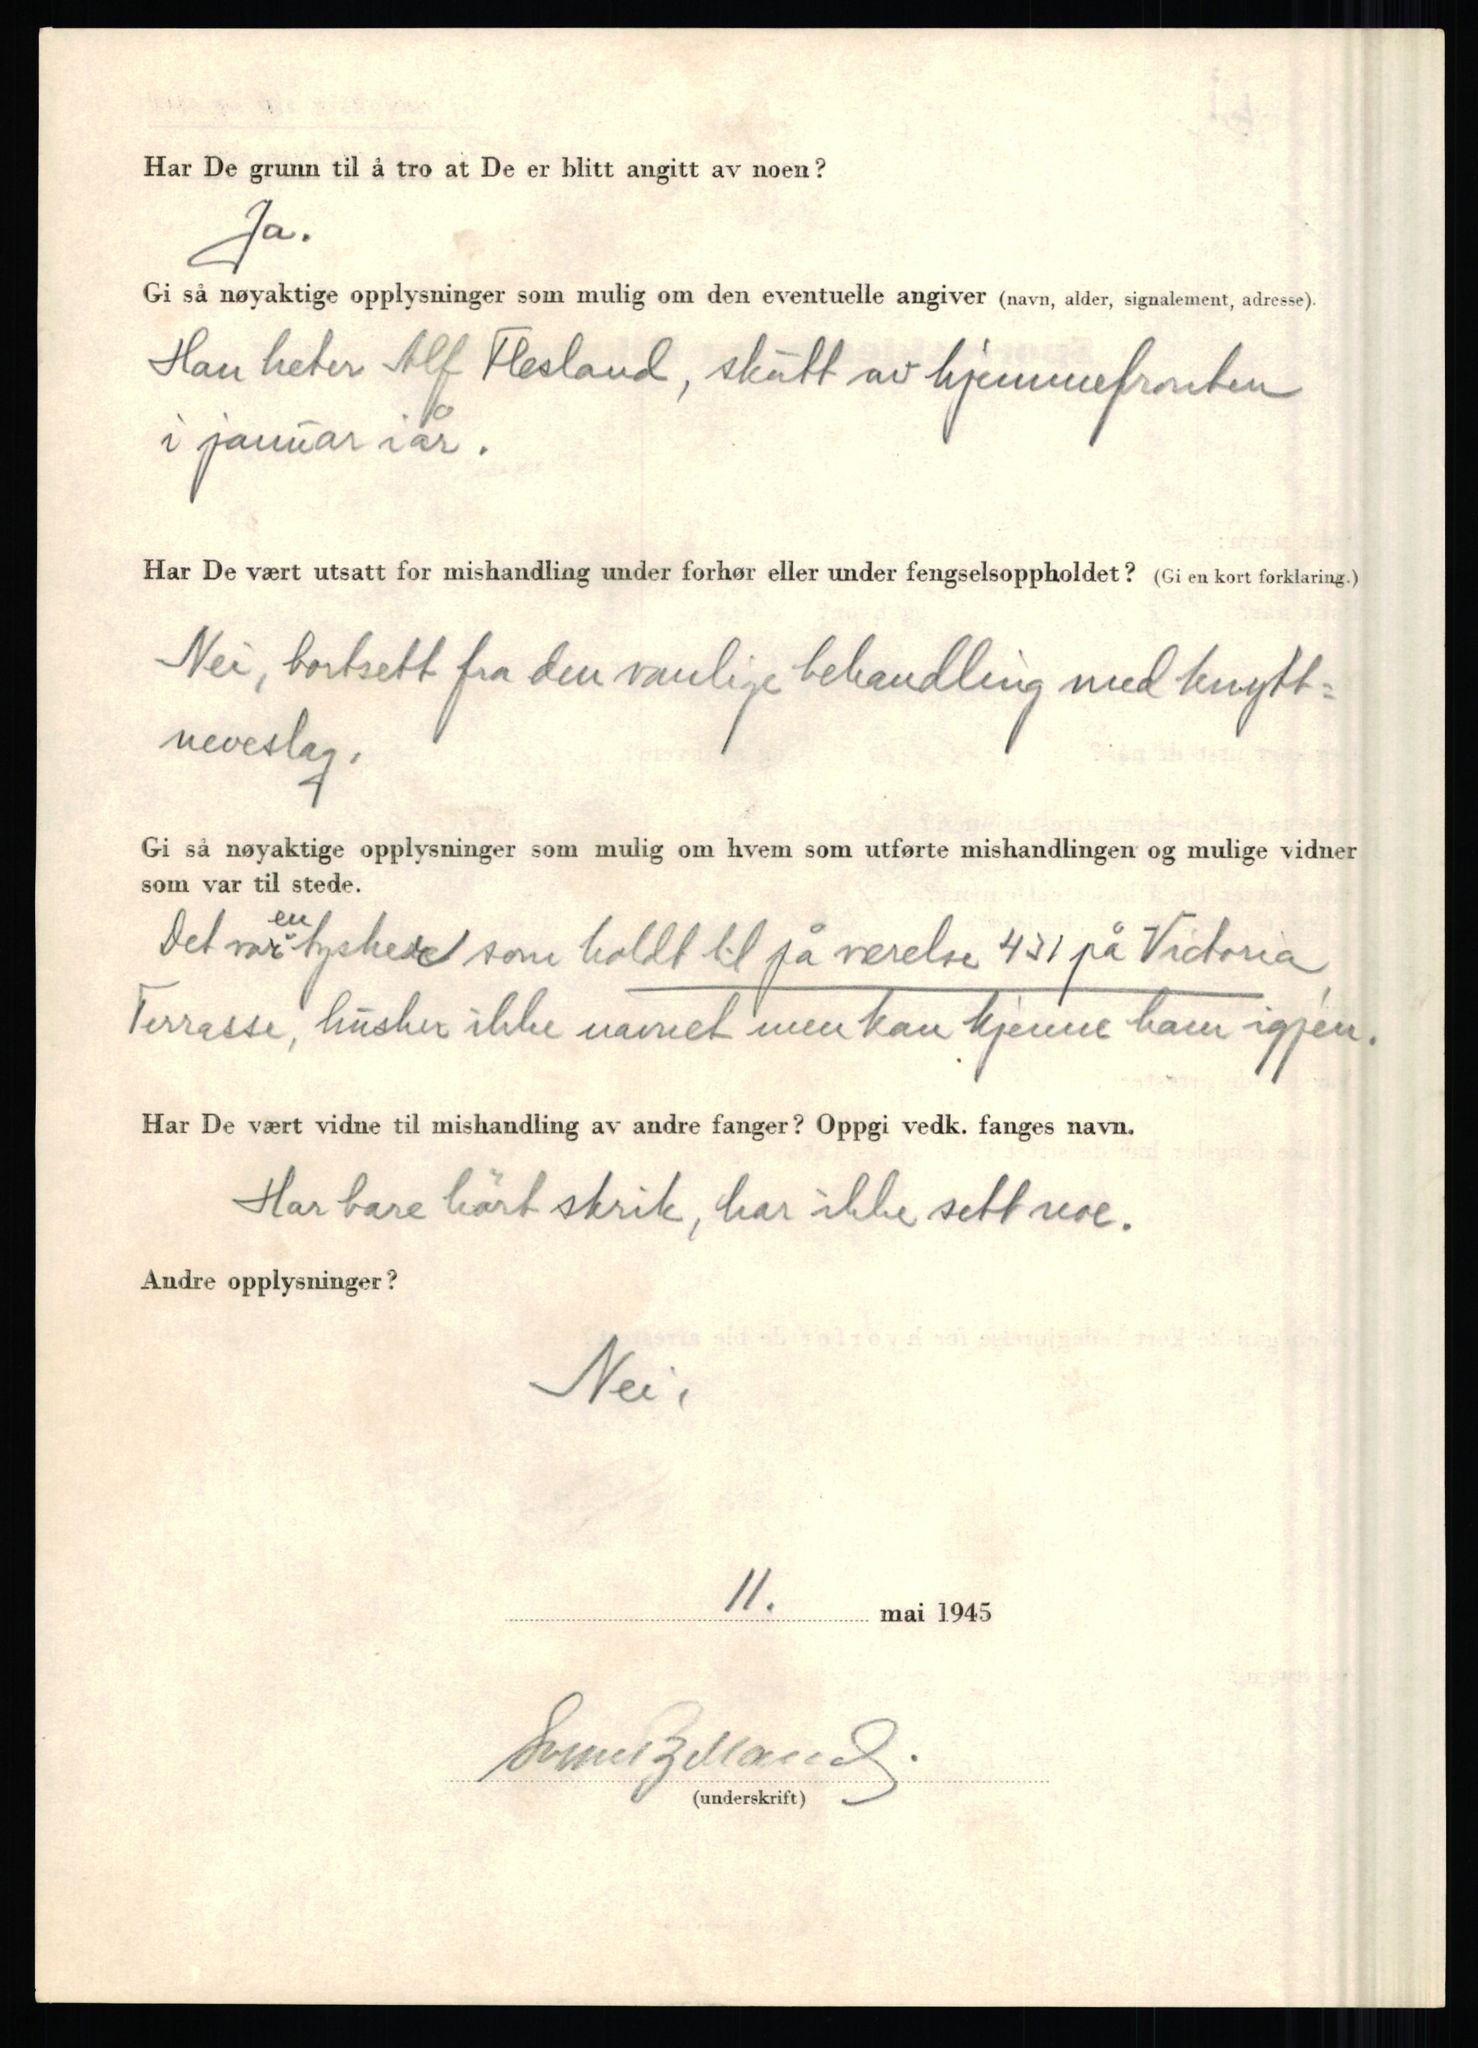 Har De grunn til å tro at De er blitt angitt av noen?
Ja.
Gi så nøyaktige opplysninger som mulig om den eventuelle angiver (navn, alder, signalement, adresse).
Han heter Alf Flesland, skütt av hjemmefronten
i januar i år.
Har De vært utsatt for mishandling under forhør eller under fengselsoppholdet? (Gi en kort forklaring.)
Nei, bortsett fra den vanlige behandling med knytt=
neveslag.
Gi så nøyaktige opplysninger som mulig om hvem som utførte mishandlingen og mulige vidner
som var til stede.
Det var en tysker som holdt til på værelse 431 på Victoria
Terrasse, hüsker ikke navnet men kan kjenne ham igjen.
Har De vært vidne til mishandling av andre fanger? Oppgi vedk. fanges navn.
Har bare hört skrik, har ikke sett noe.
Andre opplysninger?
Nei.
11. mai 1945
(underskrift)